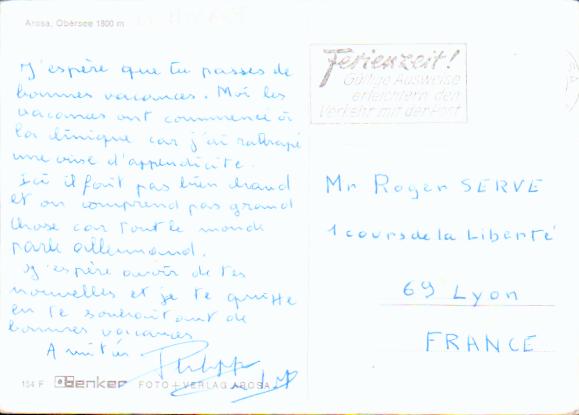 Arosa, Obersee 1800 m
J'espère que tu passes de
bonnes vacances. Moi les
vacances ont commencé à
la clinique car j'ai rattrapé
une crise d'appendicite.
Ici il fait pas bien chaud
et on comprend pas grand
chose car tout le monde
parle allemand.
J'espère avoir de tes
nouvelles et je te quitte
en te souhaitant de
bonnes vacances
Amitiés Philippe
154 F Benker FOTO + VERLAG AROSA
Ferienzeit!
Gültige Ausweise
erleichtern den
Verkehr mit der Post
Mr Roger SERVE
1 cours de la Liberté
69 Lyon
FRANCE